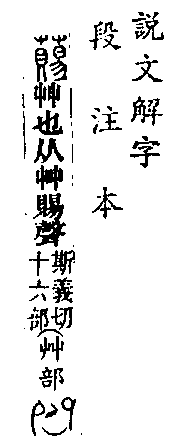 説文解字
段注本
䕣艸也从艸賜聲斯義切
十六部(艸部